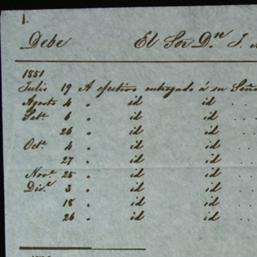 1.
Debe El Sor Dn J.
1851
Julio 19 A efectivo entregado á su Seño
Agosto 4 " id id
Sete 6 " id id
26 " id id
Octe 4 " id id
27 " id id
Nove 25 " id id
Dice 3 " id id
18 " id id
26 " id id